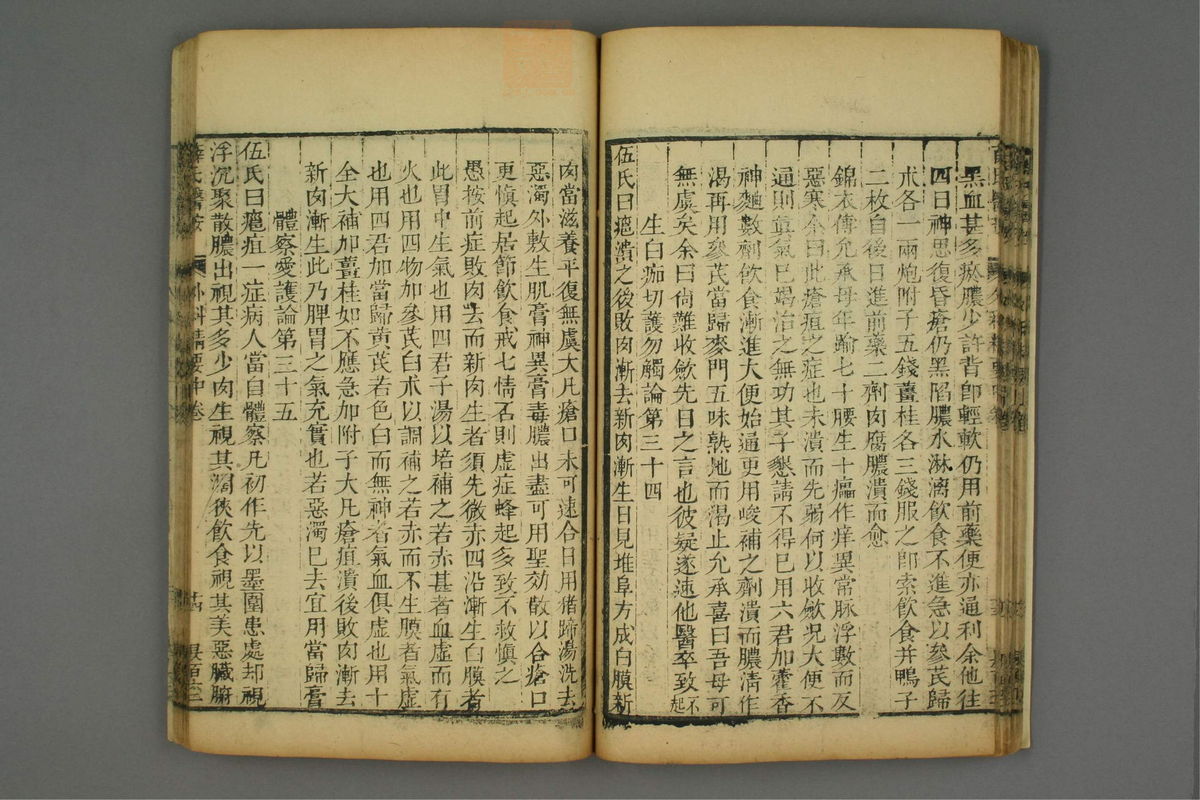 黑血甚多瘀膿少許背卽輕軟仍用前藥便亦通利余他往
四日神思復昏瘡仍黑陷膿水淋漓飲食不進急以參芪歸
朮各一兩炮附子五錢薑桂各三錢服之卽索飲食幷鴨子
二枚自後日進前藥二劑肉腐膿潰而愈
錦衣傅允承母年踰七十腰生十癟作痒異常脉浮數而反
惡寒余曰此瘡疽之症也未潰而先弱何以收斂况大便不
通則眞氣已竭治之無功其子懇請不得已用六君加藿香
神麯數劑飮食漸進大便始通更用峻補之劑潰而膿淸作
渴再用參芪當歸麥門五味熟地而渴止允承喜曰吾母可
無虞矣余曰尙難收斂先日之言也彼疑遂速他醫卒致不起
生白痂切護勿觸論第三十四
伍氏曰癰潰之後敗肉漸去新肉漸生日見堆阜方成白膜新
肉當滋養平復無虞大凡瘡口未可速合日用猪蹄湯洗去
惡濁外敷生肌膏神異膏毒膿出盡可用聖効散以合瘡口
更愼起居節飮食戒七情否則虛症蜂起多致不救愼之
愚按前症敗肉去而新肉生者須先微赤四沿漸生白膜者
此胃中生氣也用四君子湯以培補之若赤甚者血虛而有
火也用四物加參芪白朮以調補之若赤而不生膜者氣虛
也用四君加當歸黃芪若色白而無神者氣血俱虛也用十
全大補加薑桂如不應急加附子大凡瘡疽潰後敗肉漸去
新肉漸生此乃脾胃之氣充實也若惡濁已去宜用當歸膏
體察愛護論第三十五
伍氏曰癰疽一症病人當自體察凡初作先以墨圍患處却視
浮沉聚散膿出視其多少肉生視其濶狹飮食視其美惡臟腑
薛氏醫按 外科精要中卷